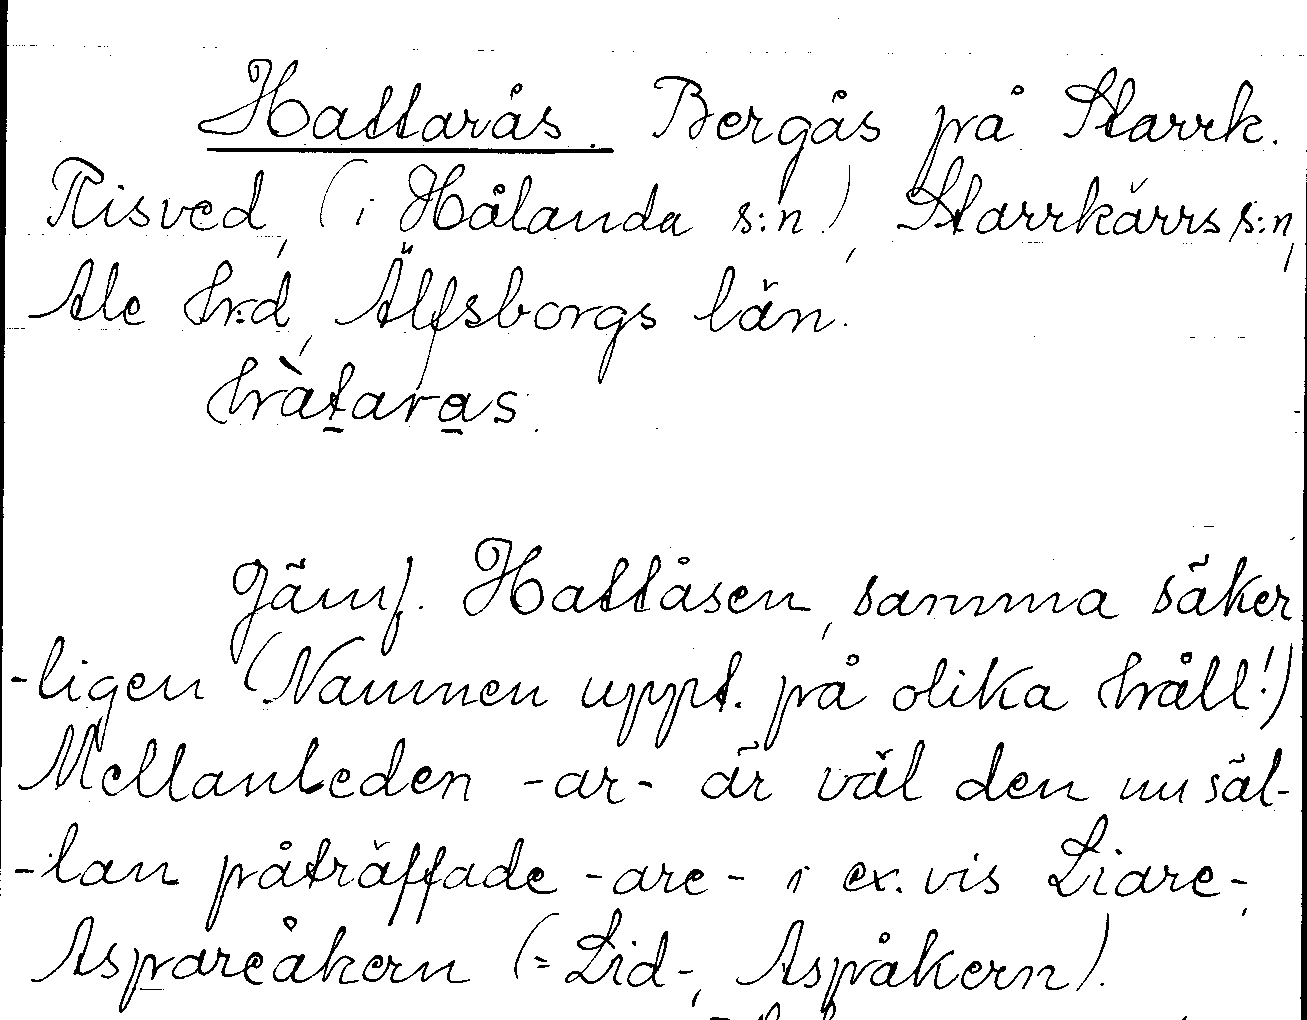 Hattarås. Bergås på Starrk.
Risved, (i Hålanda s:n), Starrkärrs s:n,
Ale hrd, Älfsborgs län.
hàtaras.
Jämf. Hattåsen, samma säker
-ligen (Namnen uppt. på olika håll!)
Mellanleden -ar- är väl den nu säl-
-lan påträffade -are- i ex.vis Liare-,
Aspareåkern (= Lid-, Aspåkern).